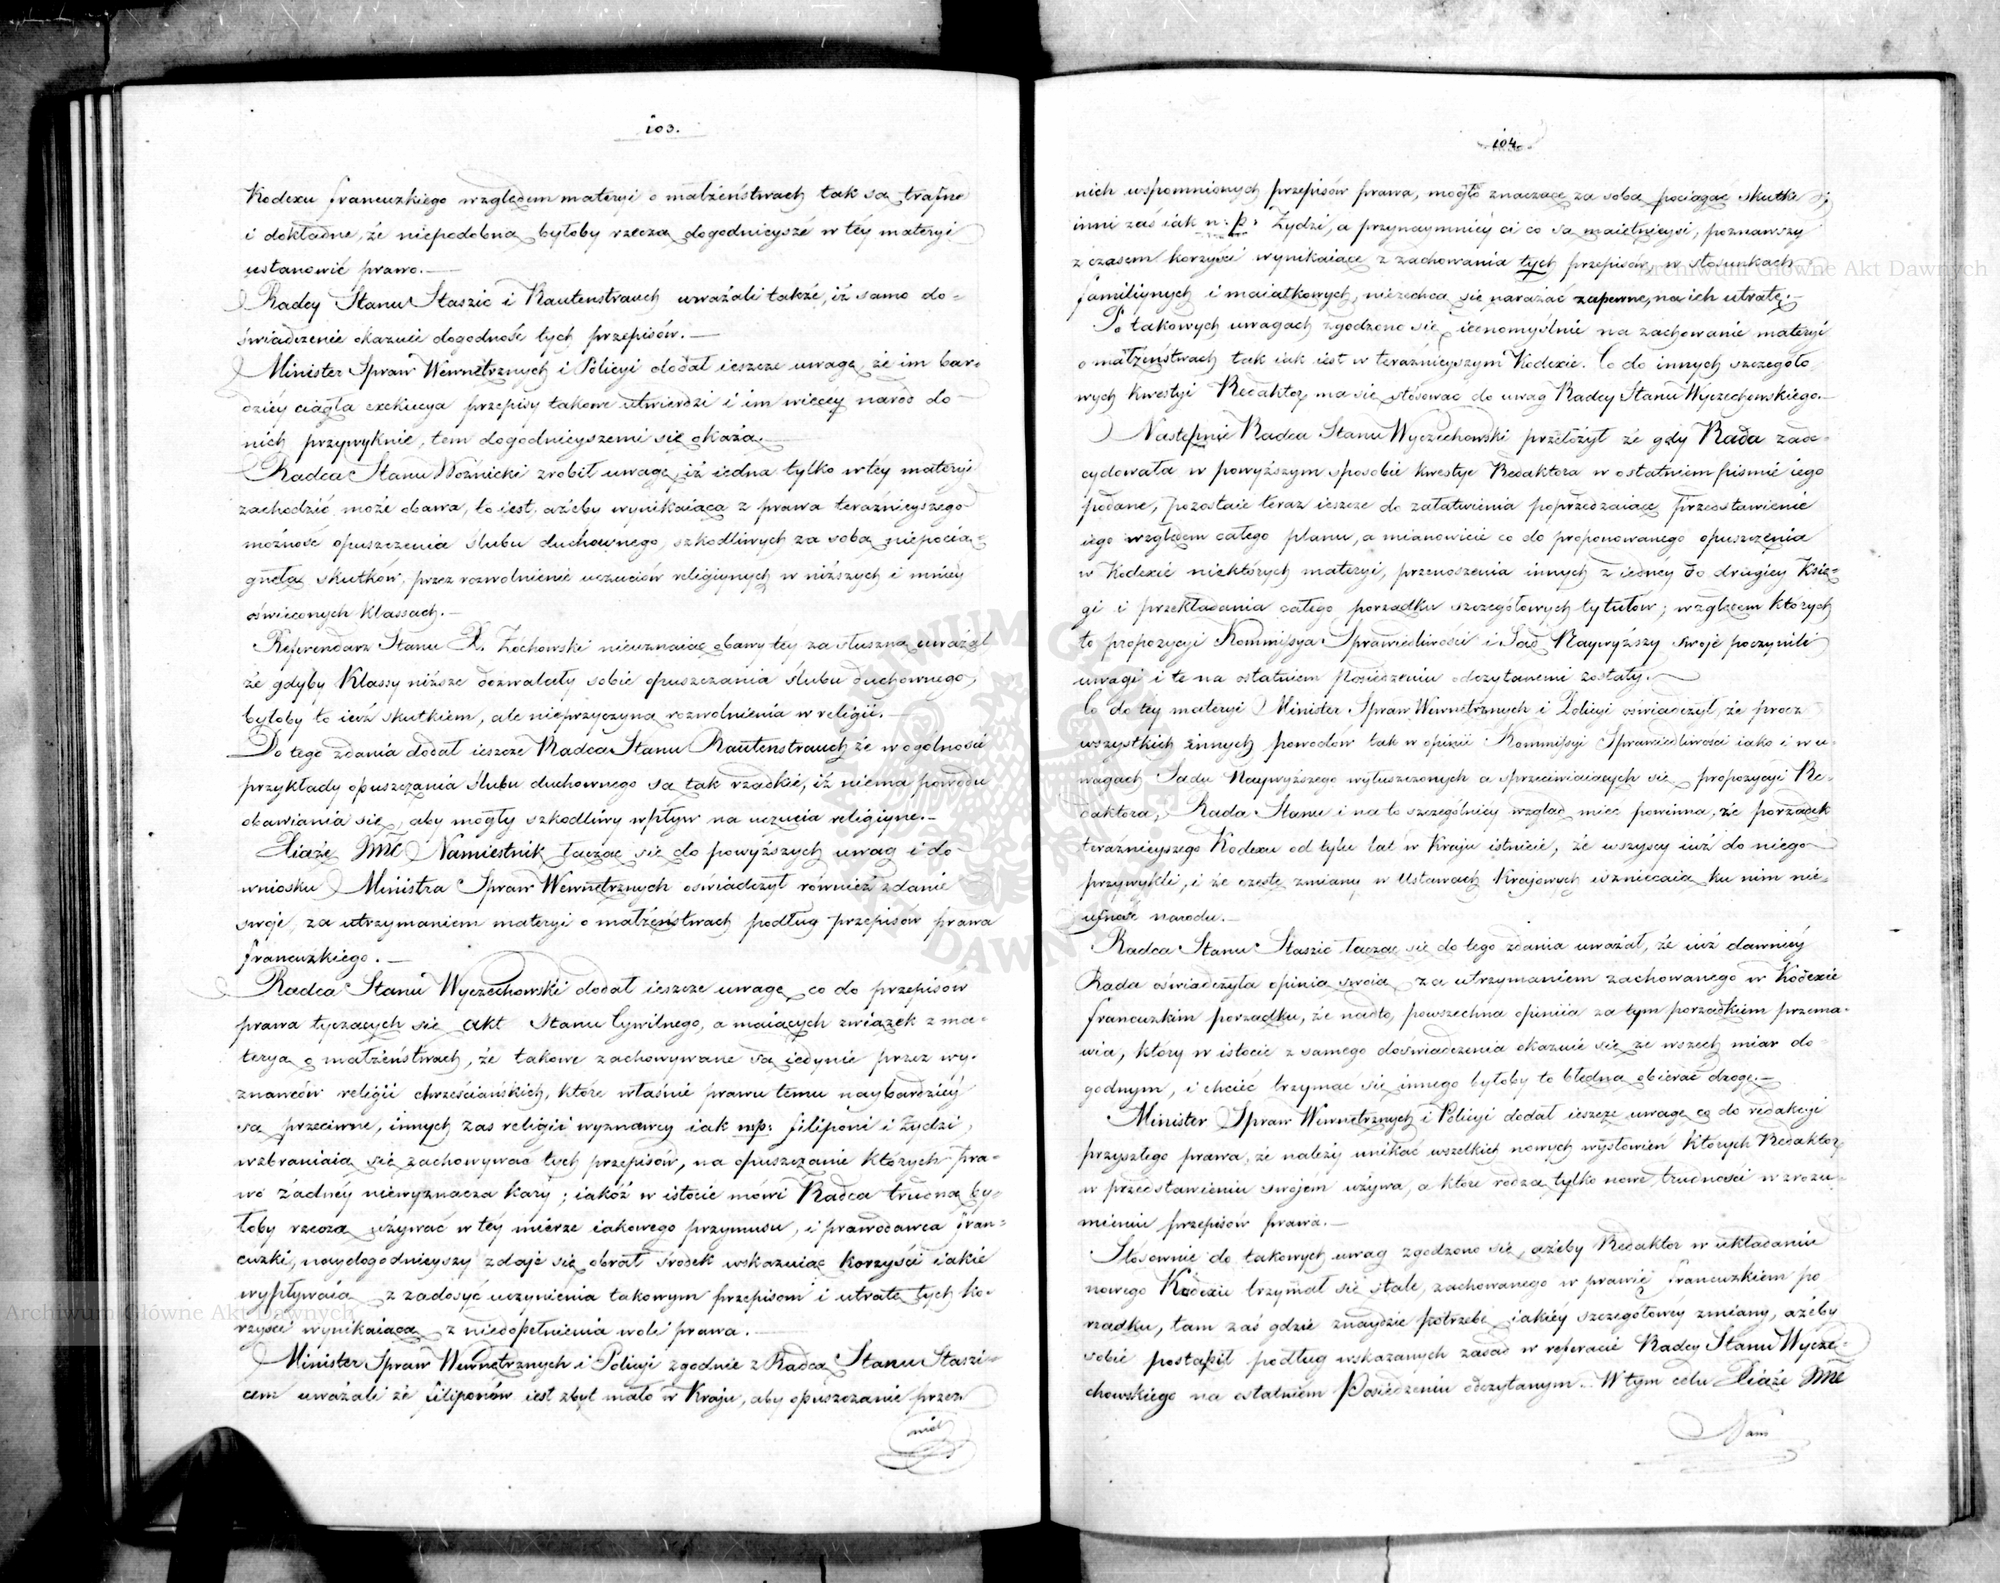 103.
Kodexu francuzkiego względem materyi o małżeństwach tak są trafne
i dokładne, że niepodobną byłoby rzeczą dogodnieysze w tey materyi
ustanowić prawo.—
Radcy Stanu Staszic i Rautenstrauch uważali także, iż samo do-
świadczenie okazuie dogodność tych przepisów.—
Minister Spraw Wewnętrznych i Policyi dodał ieszcze uwagę, że im bar-
dziey ciągła exekucya przepisy takowe utwierdzi i im więcey naród do
nich przywyknie, tem dogodnieyszemi się okażą.—
Radca Stanu Woźnicki zrobił uwagę, iż iedna tylko w tey materyi
zachodzić może obawa, to iest, ażeby wynikaiąca z prawa teraźnieyszego
możność opuszczenia ślubu duchownego, szkodliwych za sobą niepocią-
gnęła skutków, przez rozwolnienie uczuciów religiynych w niższych i mniey
oświeconych klassach.—
Referendarz Stanu X. Żochowski nieuznaiąc obawy tey za słuszną uważał
że gdyby Klassy niższe dozwalały sobie opuszczania ślubu duchownego,
byłoby to iuż skutkiem, ale nieprzyczyną rozwolnienia w religii.—
Do tego zdania dodał ieszcze Radca Stanu Rautenstrauch że w ogólności
przykłady opuszczania ślubu duchownego są tak rzadkie, iż niema powodu
obawiania się, aby mogły szkodliwy wpływ na uczucia religiyne.—
Xiąże JMC Namiestnik łącząc się do powyższych uwag i do
wniosku Ministra Spraw Wewnętrznych oświadczył również zdanie
swoje, za utrzymaniem materyi o małżeństwach podług przepisów prawa
francuzkiego.—
Radca Stanu Wyczechowski dodał ieszcze uwagę co do przepisów
prawa tyczących się akt Stanu Cywilnego, a maiących związek z ma-
teryą o małżeństwach, że takowe zachowywane są iedynie przez wy-
znawców religii chrześciańskich, które właśnie prawu temu naybardziey
są przeciwne, innych zaś religii wyznawcy iak np: filiponi i Żydzi,
wzbraniaią się zachowywać tych przepisów, na opuszczanie których pra-
wo żadney niewyznacza kary; iakoż w istocie mówi Radca trudną by-
łoby rzeczą używać w tey mierze iakowego przymusu, i prawodawca fran-
cuzki, naydogodnieyszy zdaje się obrał środek wskazuiąc korzyści iakie
wypływaią z zadosyć uczynienia takowym przepisom i utratę tych ko-
rzyści wynikaiącą z niedopełnienia woli prawa.—
Minister Spraw Wewnętrznych i Policyi zgodnie z Radcą Stanu Staszi-
cem uważali że filiponów iest zbyt mało w Kraju, aby opuszczanie przez
nich
104.
nich wspomnionych przepisów prawa, mogło znaczące za sobą pociągać skutki;
inni zaś iak n: p: Żydzi, a przynaymniey ci co są maiętnieysi, poznawszy
z czasem korzyści wynikaiące z zachowania tych przepisów, w stosunkach
familiynych i maiątkowych, niezechcą się narażać zapewne, na ich utratę.—
Po takowych uwagach zgodzono się iednomyślnie na zachowanie materyi
o małżeństwach tak iak iest w teraźnieyszym Kodexie. Co do innych szczegóło
wych kwestyi Redaktor ma się stosować do uwag Radcy Stanu Wyczechowskiego.—
Następnie Radca Stanu Wyczechowski przełożył że gdy Rada zade-
cydowała w powyższym sposobie kwestye Redaktora w ostatniem piśmie iego
podane, pozostaie teraz ieszcze do załatwienia poprzedzaiące przedstawienie
iego względem całego planu, a mianowicie co do proponowanego opuszczenia
w Kodexie niektórych materyi, przenoszenia innych z iedney do drugiey Księ-
gi i przekładania całego porządku szczegółowych tytułów; względem których
to propozycyi Kommissya Sprawiedliwości i Sąd Naywyższy swoje poczynili
uwagi i te na ostatniem posiedzeniu odczytanemi zostały.—
Co do tey materyi Minister Spraw Wewnętrznych i Policyi oświadczył, że procz
wszystkich innych powodów tak w opinii Kommissyi Sprawiedliwości iako i w u-
wagach Sądu Naywyższego wyłuszczonych a sprzeciwiaiących się propozycyi Re-
daktora, Rada Stanu i na to szczególniey wzgląd mieć powinna, że porządek
teraźnieyszego Kodexu od tylu lat w Kraju istnieie, że wszyscy iuż do niego
przywykli, i że częste zmiany w Ustawach Krajowych wzniecaią ku nim nie-
ufność narodu.—
Radca Stanu Staszic łącząc się do tego zdania uważał, że iuż dawniey
Rada oświadczyła opinią swoią za utrzymaniem zachowanego w Kodexie
francuzkim porządku, że nadto, powszechna opiniia za tym porządkiem przema-
wia, który w istocie z samego doświadczenia okazuie się ze wszech miar do-
godnym, i chcieć trzymać się innego byłoby to błędną obierać drogę.—
Minister Spraw Wewnętrznych i Policyi dodał ieszcze uwagę co do redakcyi
przyszłego prawa, że należy unikać wszelkich nowych wysłowień których Redaktor
w przedstawieniu swojem używa, a które rodzą tylko nowe trudności w zrozu-
mieniu przepisów prawa.—
Stosownie do takowych uwag zgodzono się, ażeby Redaktor w układaniu
nowego Kodexu trzymał się stale, zachowanego w prawie francuzkiem po
rządku, tam zaś gdzie znaydzie potrzebę iakiey szczegółowey zmiany, ażeby
sobie postąpił podług wskazanych zasad w referacie Radcy Stanu Wycze-
chowskiego na ostatniem Posiedzeniu odczytanym. W tym celu Xiąże JMC
Nam
Archiwum Główne Akt Dawnych
Archiwum Główne Akt Dawnych
ARCHIWUM GŁÓWNE AKT DAWNYCH